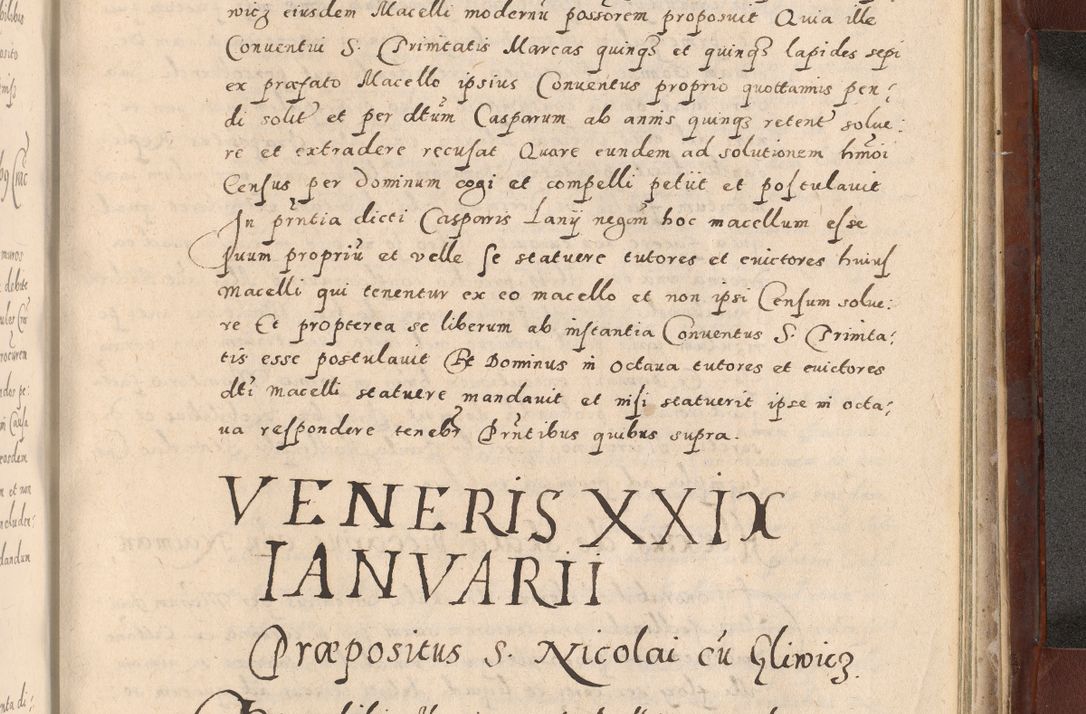 wicz eiusdem Macelli modernũ possorem proposuit Quia ille
Conventui S. Trinitatis Marcas quinqȝ et quinqȝ lapides sepi
ex præfato Macello ipsius Conuentus proprio quottannis pen¬
di solit et per dtũm Casparum ab annis quinqȝ retent solue:
re et extradere recusat Quare eundem ad solutionem hm̃oi
Census per Dominum cogi et compelli petiit et postulauit
In pr̃ntia dicti Casparis Lanij negan̄ hoc macellum esse
suum propriũ et velle se statuere tutores et euictores huius
Macelli qui tenentur ex eo macello et non ipsi Censum solue:
re Et propterea se liberum ab instantia Conuentus S. Trinita¬
tis esse postulauit Et Dominus in octaua tutores et euictores
dti Macelli statuere mandauit et nisi statuerit ipse in octa¬
ua respondere teneb̃r Pr̃ntibus quibus supra.
VENERIS XXIX
IANVARII
Præpositus S. Nicolai cũ Gliwicz.